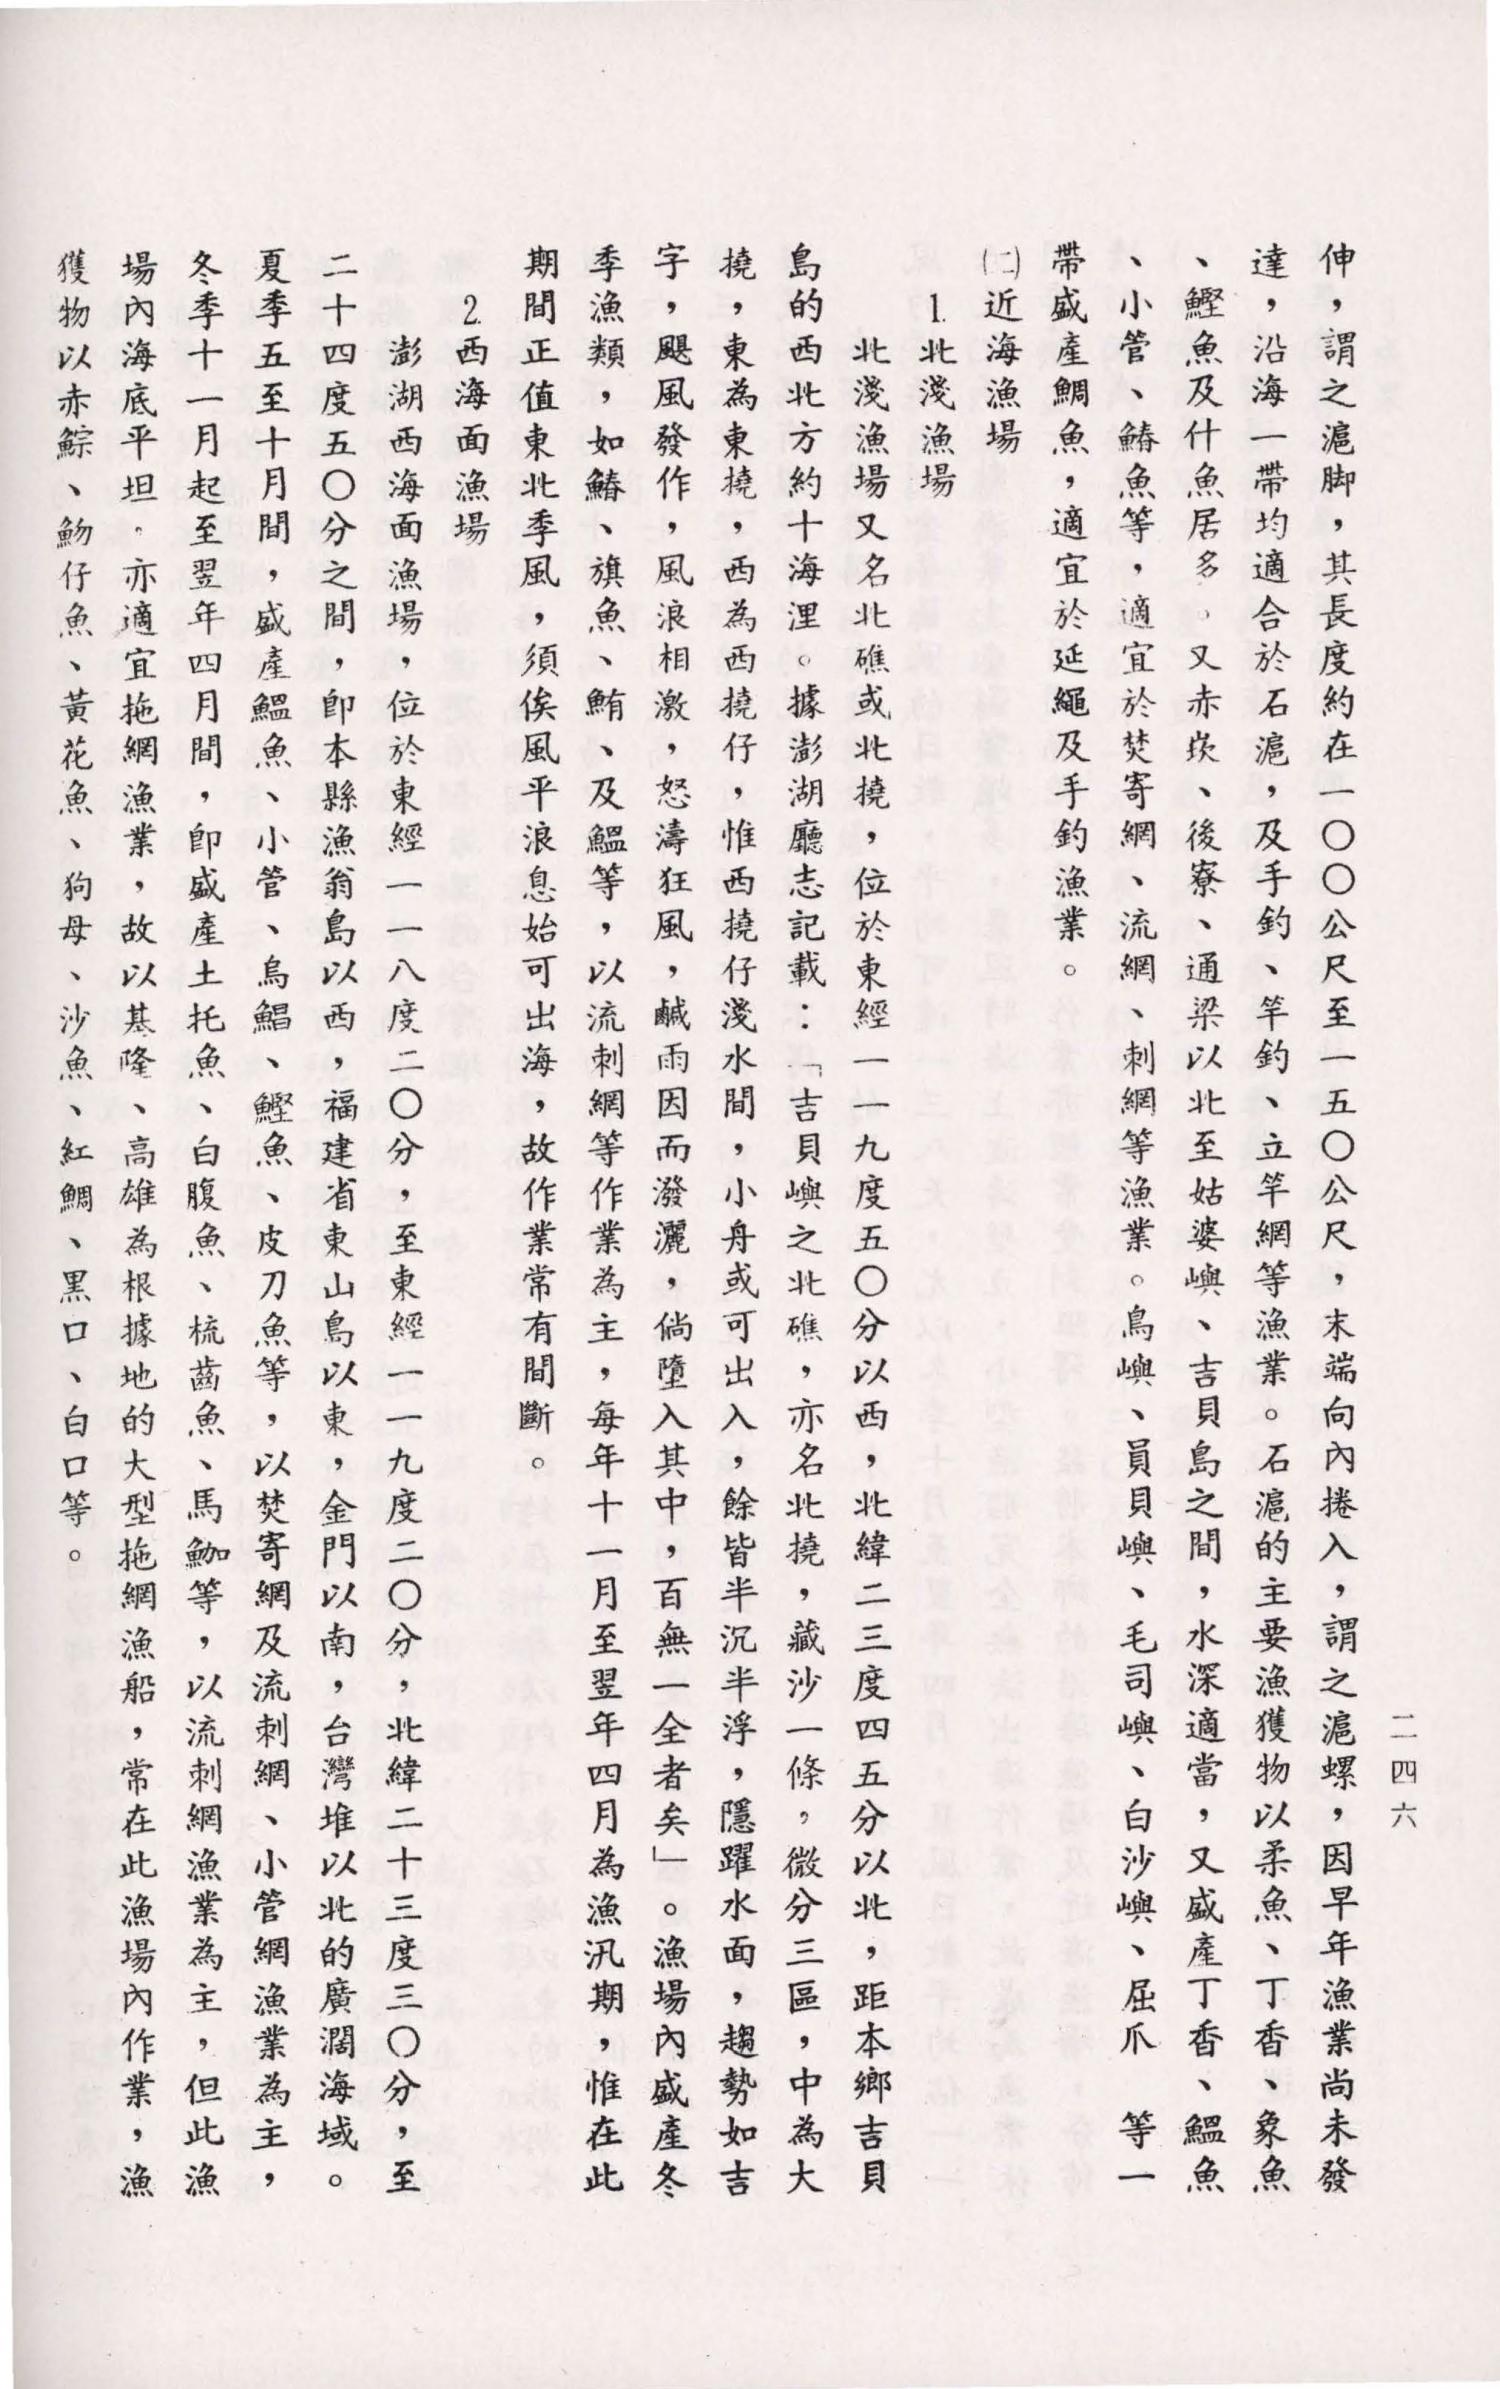 二四六
伸，謂之滬脚，其長度約在一〇〇公尺至一五〇公尺，末端向內捲入，謂之滬螺，因早年漁業尚未發
達，沿海一帶均適合於石滬，及手釣、竿釣、立竿網等漁業。石滬的主要漁獲物以柔魚、丁香、象魚
、鰹魚及什魚居多。又赤崁、後寮、通梁以北至姑婆嶼、吉貝島之間，水深適當，又盛產丁香、鰮魚
、小管、鰆魚等，適宜於焚寄網、流網、刺網等漁業。鳥嶼、員貝嶼、毛司嶼、白沙嶼、屈爪　等一
帶盛產鯛魚，適宜於延繩及手釣漁業。
㈡近海漁場
1.北淺漁場
北淺漁場又名北礁或北撓，位於東經一一九度五〇分以西，北緯二三度四五分以北，距本鄉吉貝
島的西北方約十海浬。據澎湖廳志記載：「吉貝嶼之北礁，亦名北撓，藏沙一條，微分三區，中為大
撓，東為東撓，西為西撓仔，惟西撓仔淺水間，小舟或可出入，餘皆半沉半浮，隱躍水面，趨勢如吉
字，颶風發作，風浪相激，怒濤狂風，鹹雨因而潑灑，倘墮入其中，百無一全者矣」。漁場內盛產冬
季漁類，如鰆、旗魚、鮪、及鰮等，以流刺網等作業為主，每年十一月至翌年四月為漁汛期，惟在此
期間正值東北季風，須俟風平浪息始可出海，故作業常有間斷。
2.西海面漁場
澎湖西海面漁場，位於東經一一八度二〇分，至東經一一九度二〇分，北緯二十三度三〇分，至
二十四度五〇分之間，卽本縣漁翁島以西，福建省東山島以東，金門以南，台灣堆以北的廣濶海域。
夏季五至十月間，盛產鰮魚、小管、烏鯧、鰹魚、皮刀魚等，以焚寄網及流刺網、小管網漁業為主，
冬季十一月起至翌年四月間，卽盛產土托魚、白腹魚、梳齒魚、馬鮂等，以流刺網漁業為主，但此漁
場內海底平坦。亦適宜拖網漁業，故以基隆、高雄為根據地的大型拖網漁船，常在此漁場內作業，漁
獲物以赤鯮、魩仔魚、黃花魚、狗母、沙魚、紅鯛、黑口、白口等。